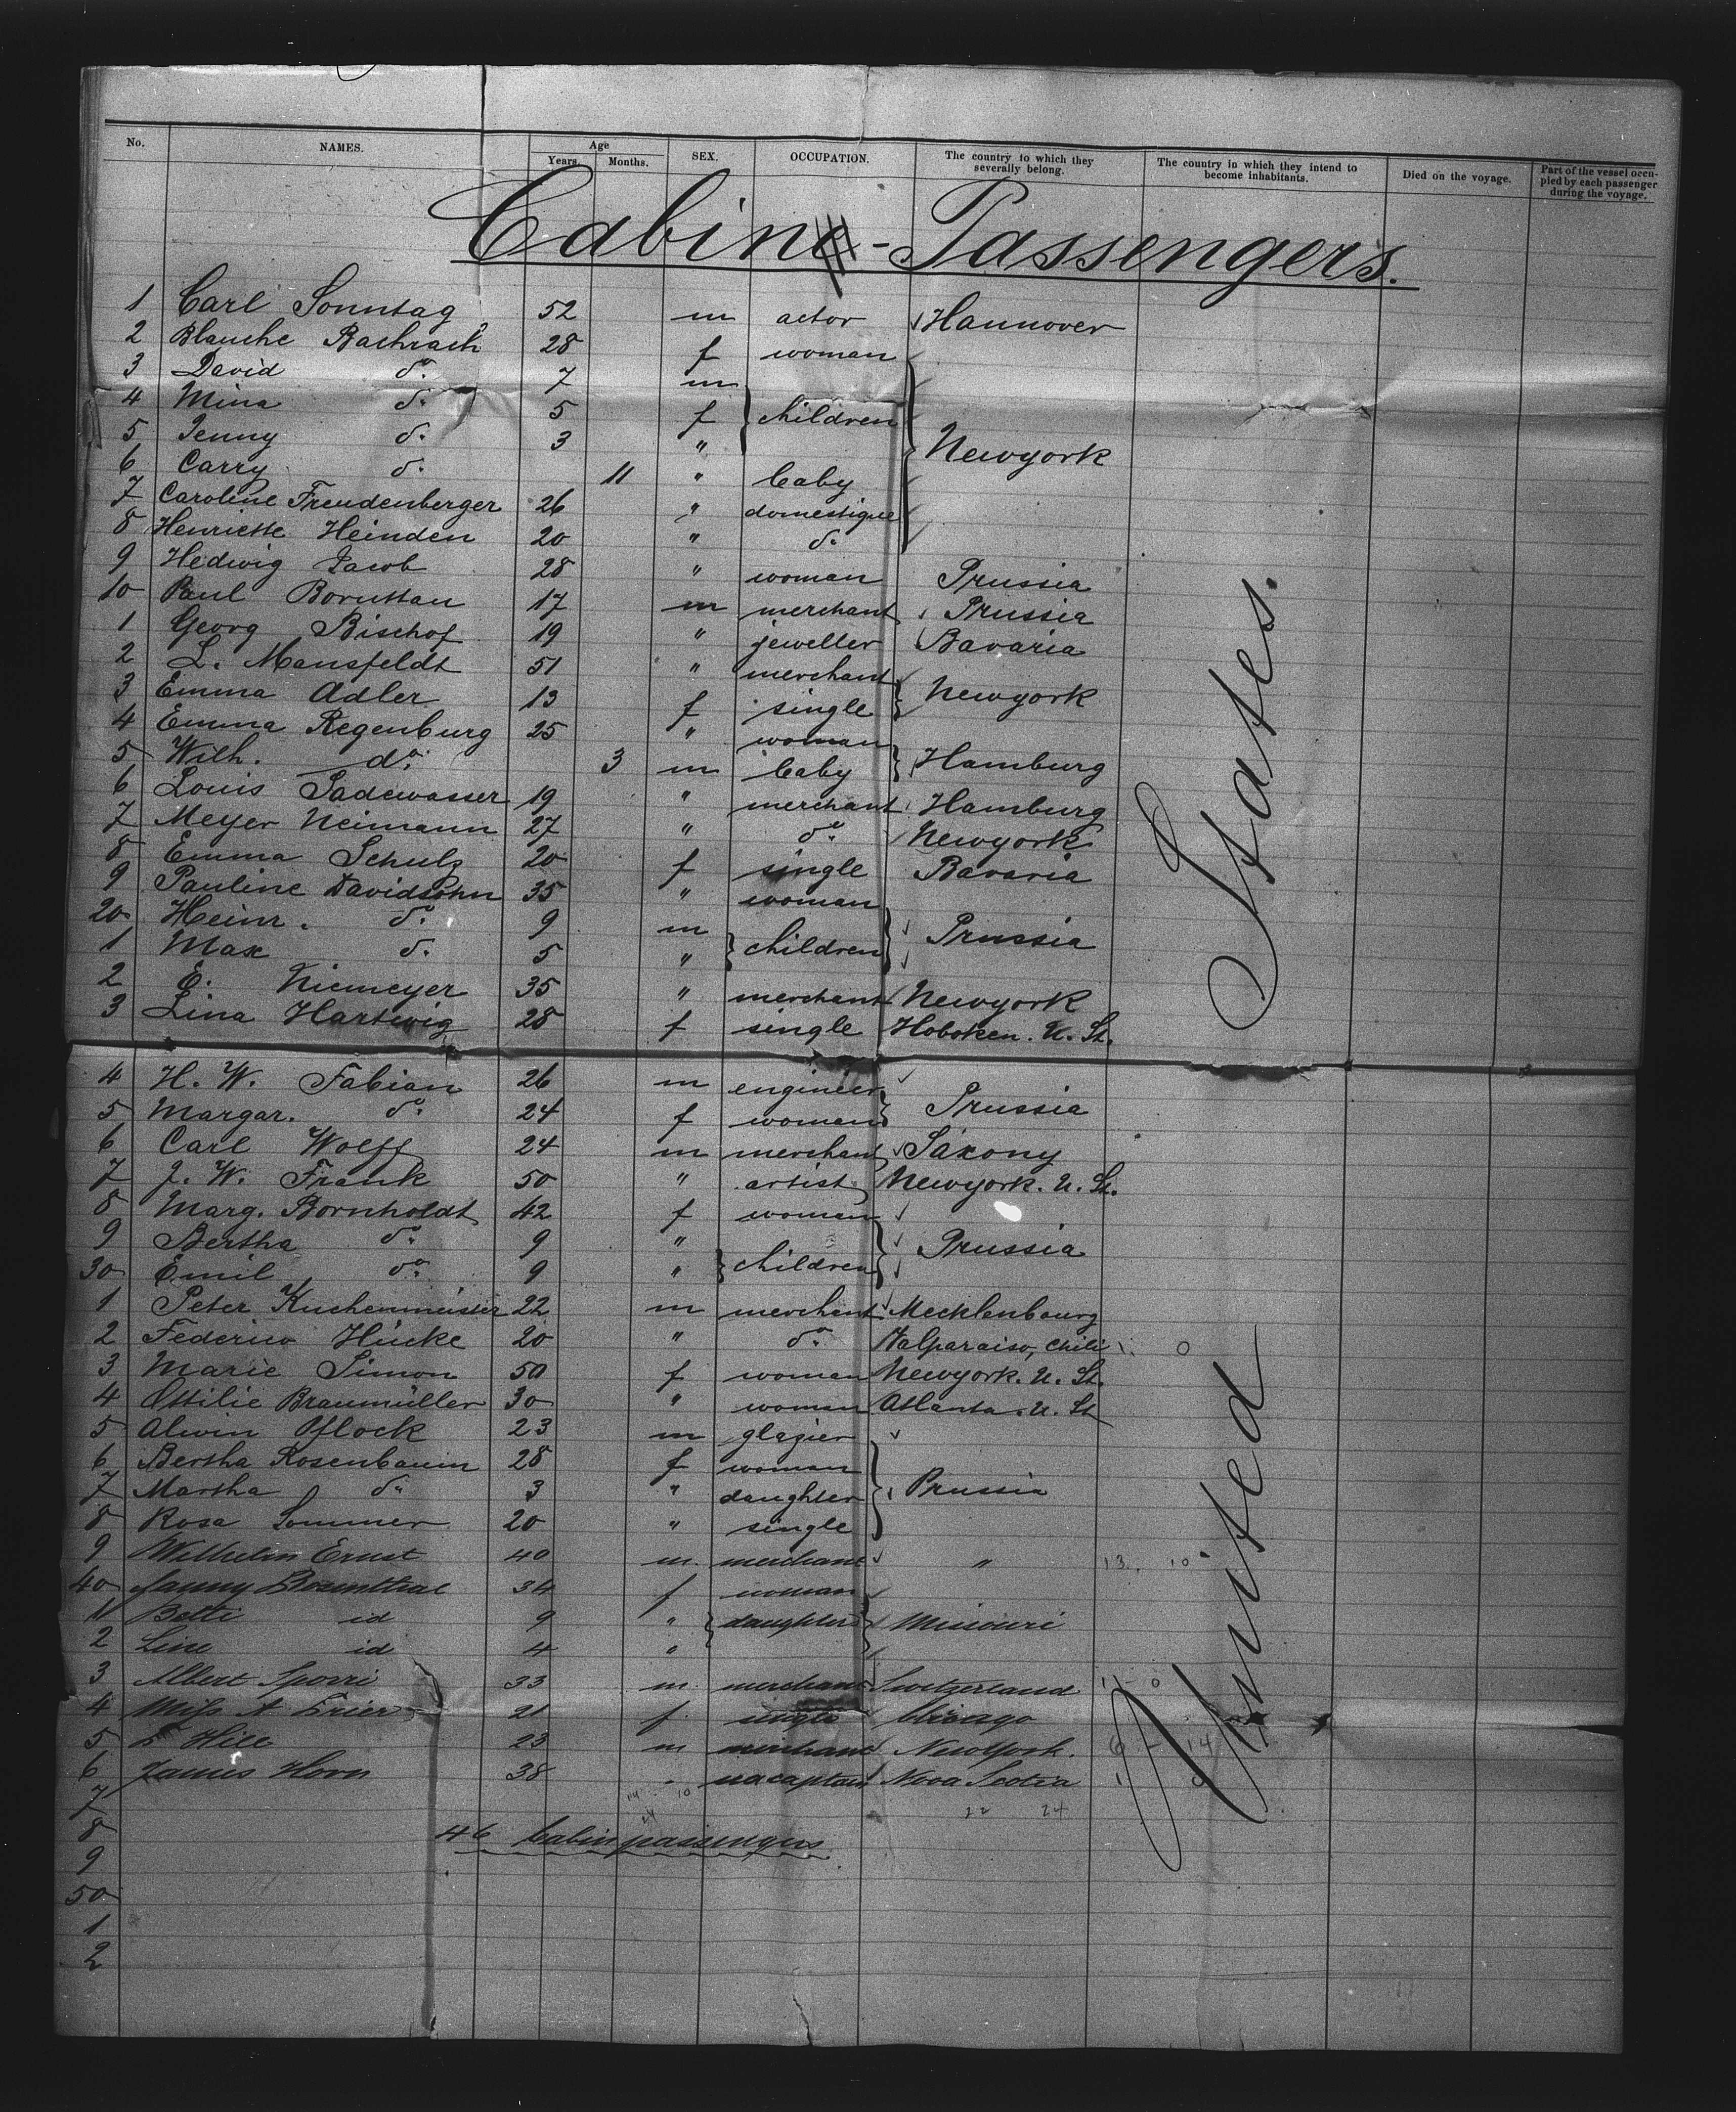 No. NAMES. Age Years. Months. SEX. OCCUPATION. The country to which they severally belong. The country in which they intend to become inhabitants. Died on the voyage. Part of the vessel occupied by each passenger during the voyage.
Cabin - Passengers.
1 Carl Sonntag 52 m actor Hannover
2 Blanche Bachrach 28 f woman
3 David do. 7 m
4 Mina do. 5 f children
5 Jenny do. 3 " Newyork
6 Carry do. 11 " baby
7 Caroline Freudenberger 26 " domestique
8 Henriette Heinden 20 " do.
9 Hedwig Jacob 28 " woman Prussia
10 Paul Boruttau 17 m merchant Prussia
1 Georg Bischof 19 " jeweller Bavaria
2 L. Mansfeldt 51 " merchant
3 Emma Adler 13 f single Newyork
4 Emma Regenburg 25 " woman
5 Wilh. do. 3 m baby Hamburg
6 Louis Sadewasser 19 " merchant Hamburg
7 Meyer Neimann 27 " do. Newyork
8 Emma Schulz 20 f single Bavaria
9 Pauline Davidsohn 35 " woman
20 Heinr. do. 9 m children Prussia
1 Max do. 5 "
2 E. Niemeyer 35 " merchant Newyork
3 Lina Hartwig 28 f single Hoboken. U. St.
4 H. W. Fabian 26 m engineer
5 Margar. do. 24 f woman Prussia
6 Carl Wolff 24 m merchant Saxony
7 J. W. Frank 50 " artist Newyork. U. St.
8 Marg. Bornholdt 42 f woman
9 Bertha do. 9 " Prussia
30 Emil do. 9 " children
1 Peter Kuchenmeister 22 m merchant Mecklenbourg
2 Federico Hücke 20 " do. Valparaiso, Chili 0
3 Marie Simon 50 f woman Newyork. U. St.
4 Ottilie Braumüller 30 " woman Atlanta. U. St.
5 Alwin Pflock 23 m glazier
6 Bertha Rosenbaum 28 f woman
7 Martha do. 3 " daughter Prussia
8 Rosa Sommer 20 " single
9 Wilhelm Ernst 40 m. merchant " 13. 10
40 Fanny Rosenthal 34 f woman
11 Betti id 9 " daughter Missouri
2 Line id 4 "
3 Albert Sporri 33 m. merchant Switzerland 1 - 0
4 Miss A Trier 21 f. single Chicago
5 Hill 23 m merchant New York. 6 - 14
6 James Horn 38 " seacaptain Nova Scotia 1
7 14 10
8 24 22 24
46 Cabinpassengers
9
50
1
2
United States.